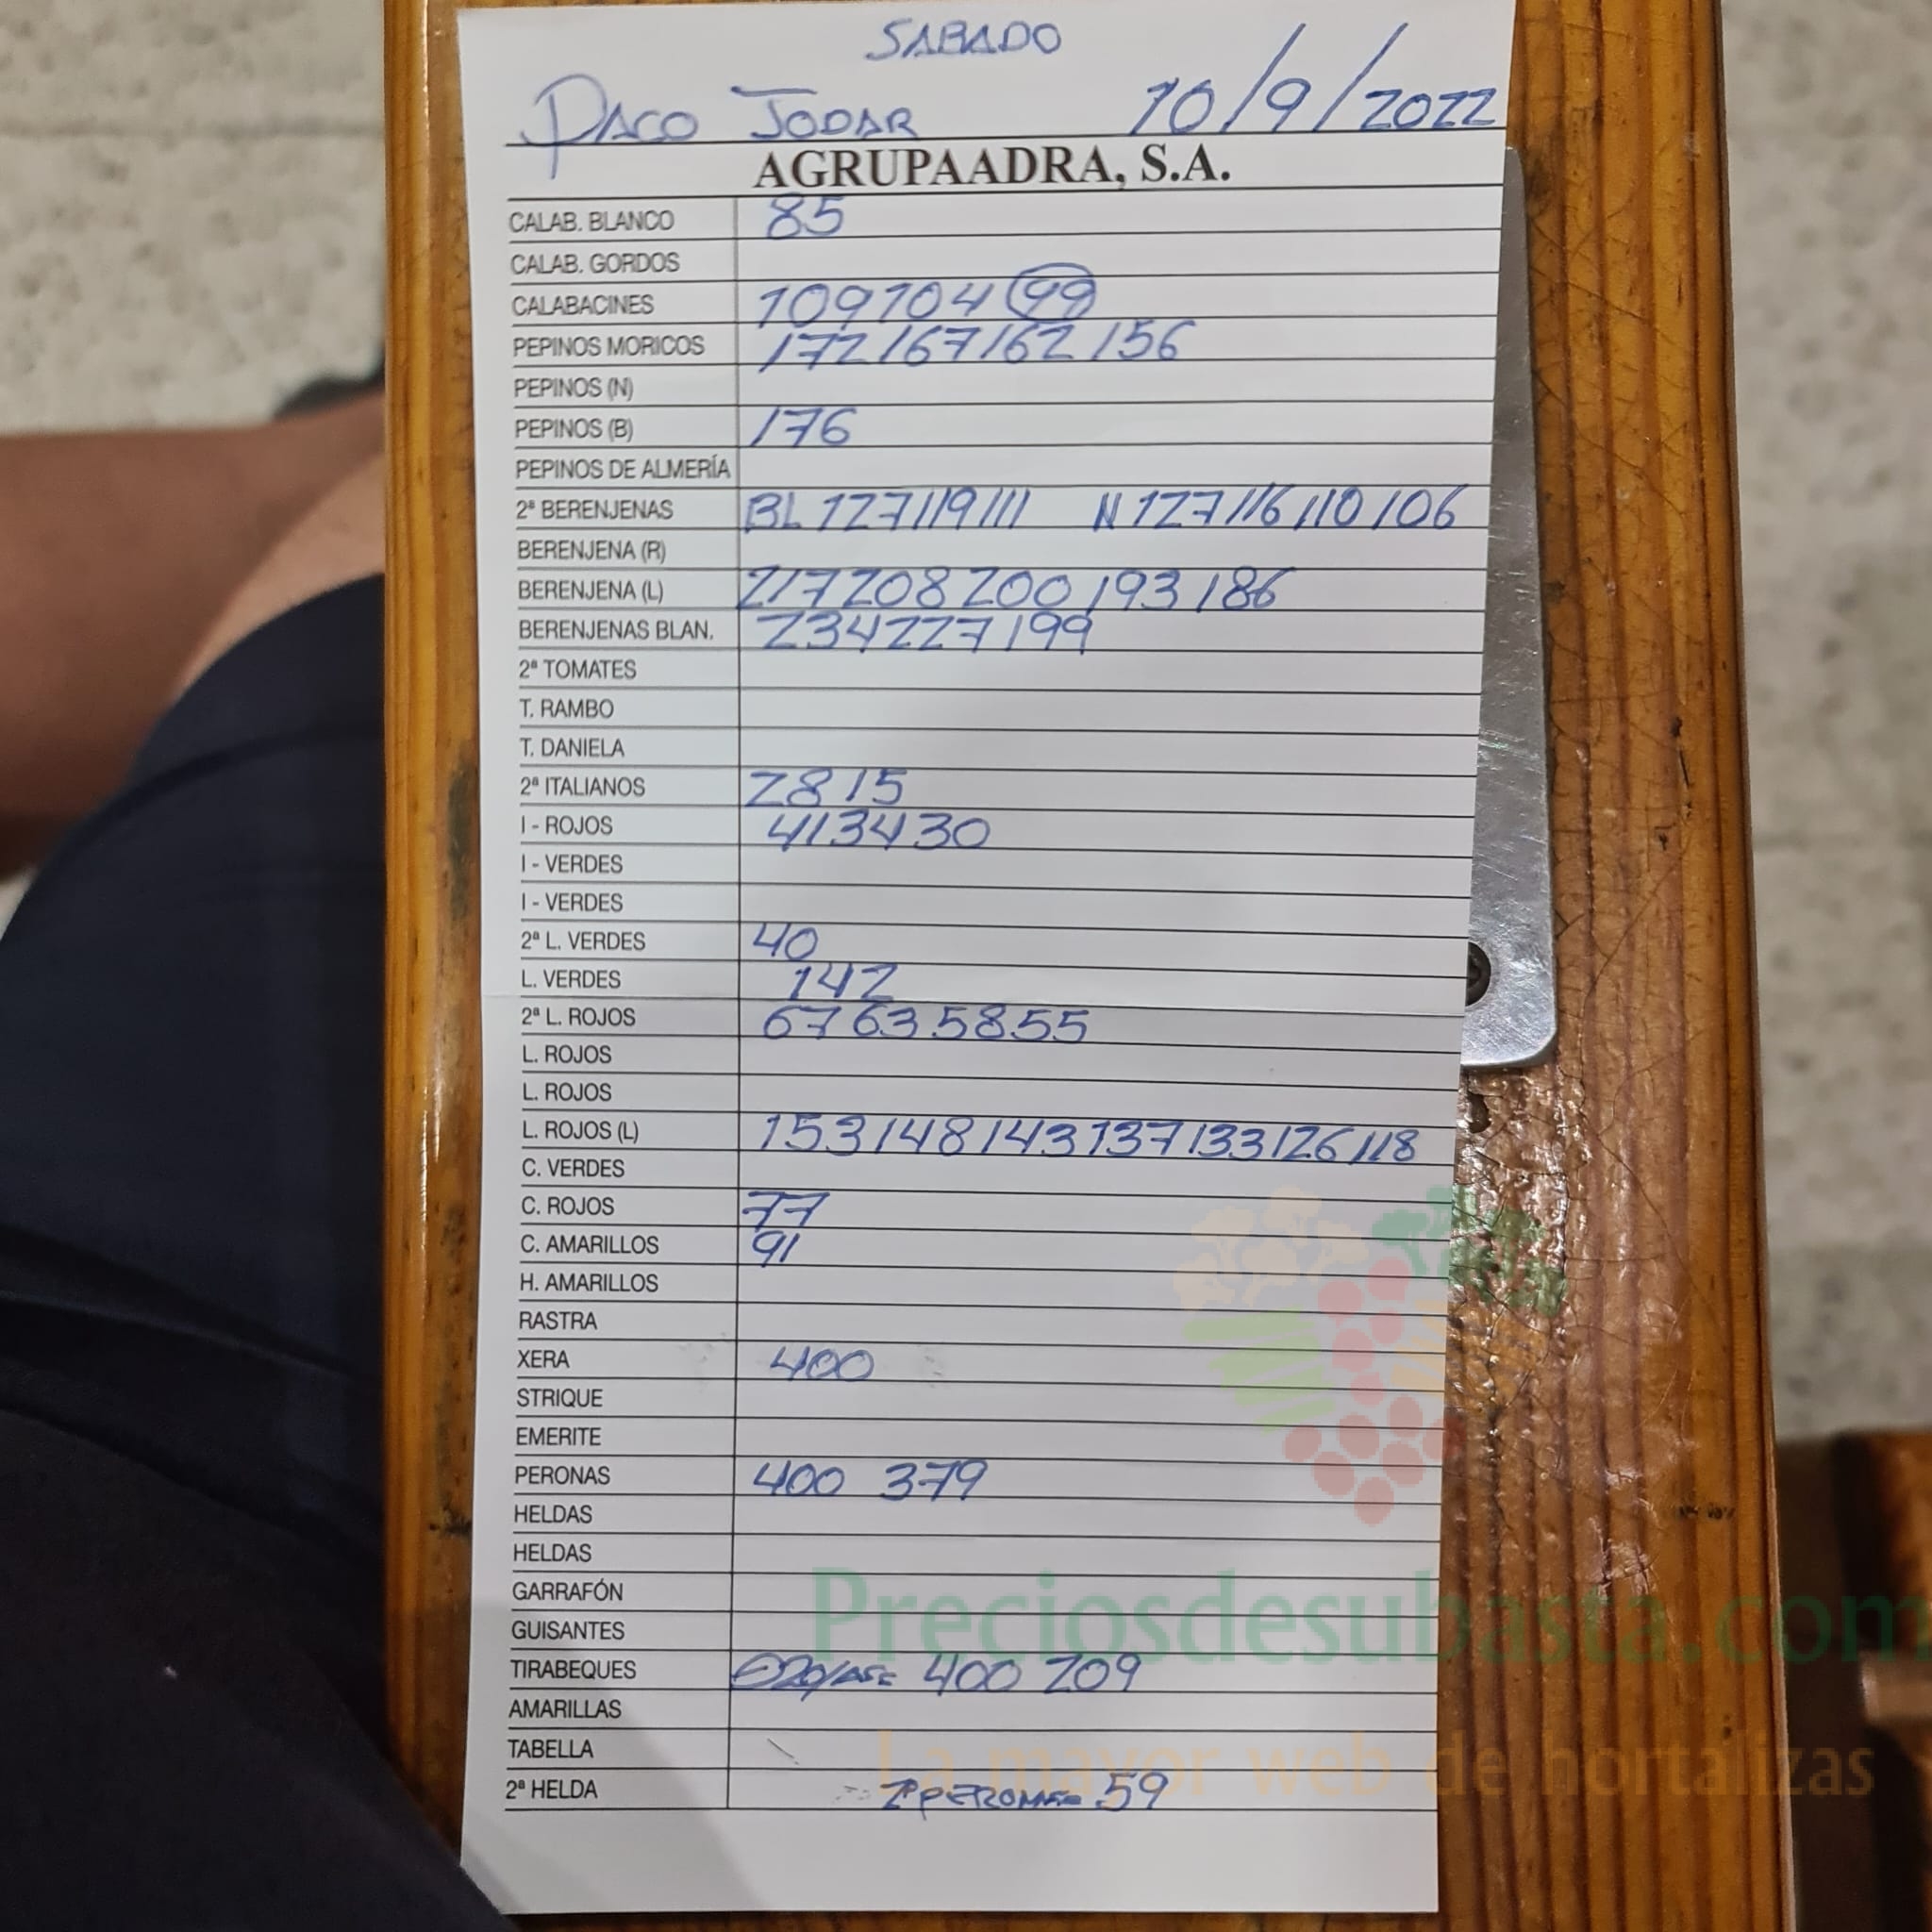 SABADO
PACO JODAR 10/9/2022
AGRUPAADRA, S.A.
CALAB. BLANCO 85
CALAB. GORDOS
CALABACINES 109 104 99
PEPINOS MORICOS 172 167 162 156
PEPINOS (N)
PEPINOS (B) 176
PEPINOS DE ALMERÍA
2ª BERENJENAS BL 127 119 111 N 127 116 110 106
BERENJENA (R)
BERENJENA (L) 217 208 200 193 186
BERENJENAS BLAN. 234 227 199
2ª TOMATES
T. RAMBO
T. DANIELA
2ª ITALIANOS 28 15
I - ROJOS 41 34 30
I - VERDES
I - VERDES
2ª L. VERDES 40
L. VERDES 142
2ª L. ROJOS 67 63 58 55
L. ROJOS
L. ROJOS
L. ROJOS (L) 153 148 143 137 133 126 118
C. VERDES
C. ROJOS 77
C. AMARILLOS 91
H. AMARILLOS
RASTRA
XERA 400
STRIQUE
EMERITE
PERONAS 400 379
HELDAS
HELDAS
GARRAFÓN
GUISANTES
Preciosdesubasta.com
TIRABEQUES 400 209
AMARILLAS
TABELLA
La mayor web de hortalizas
2ª HELDA 2ª PERONAS 59